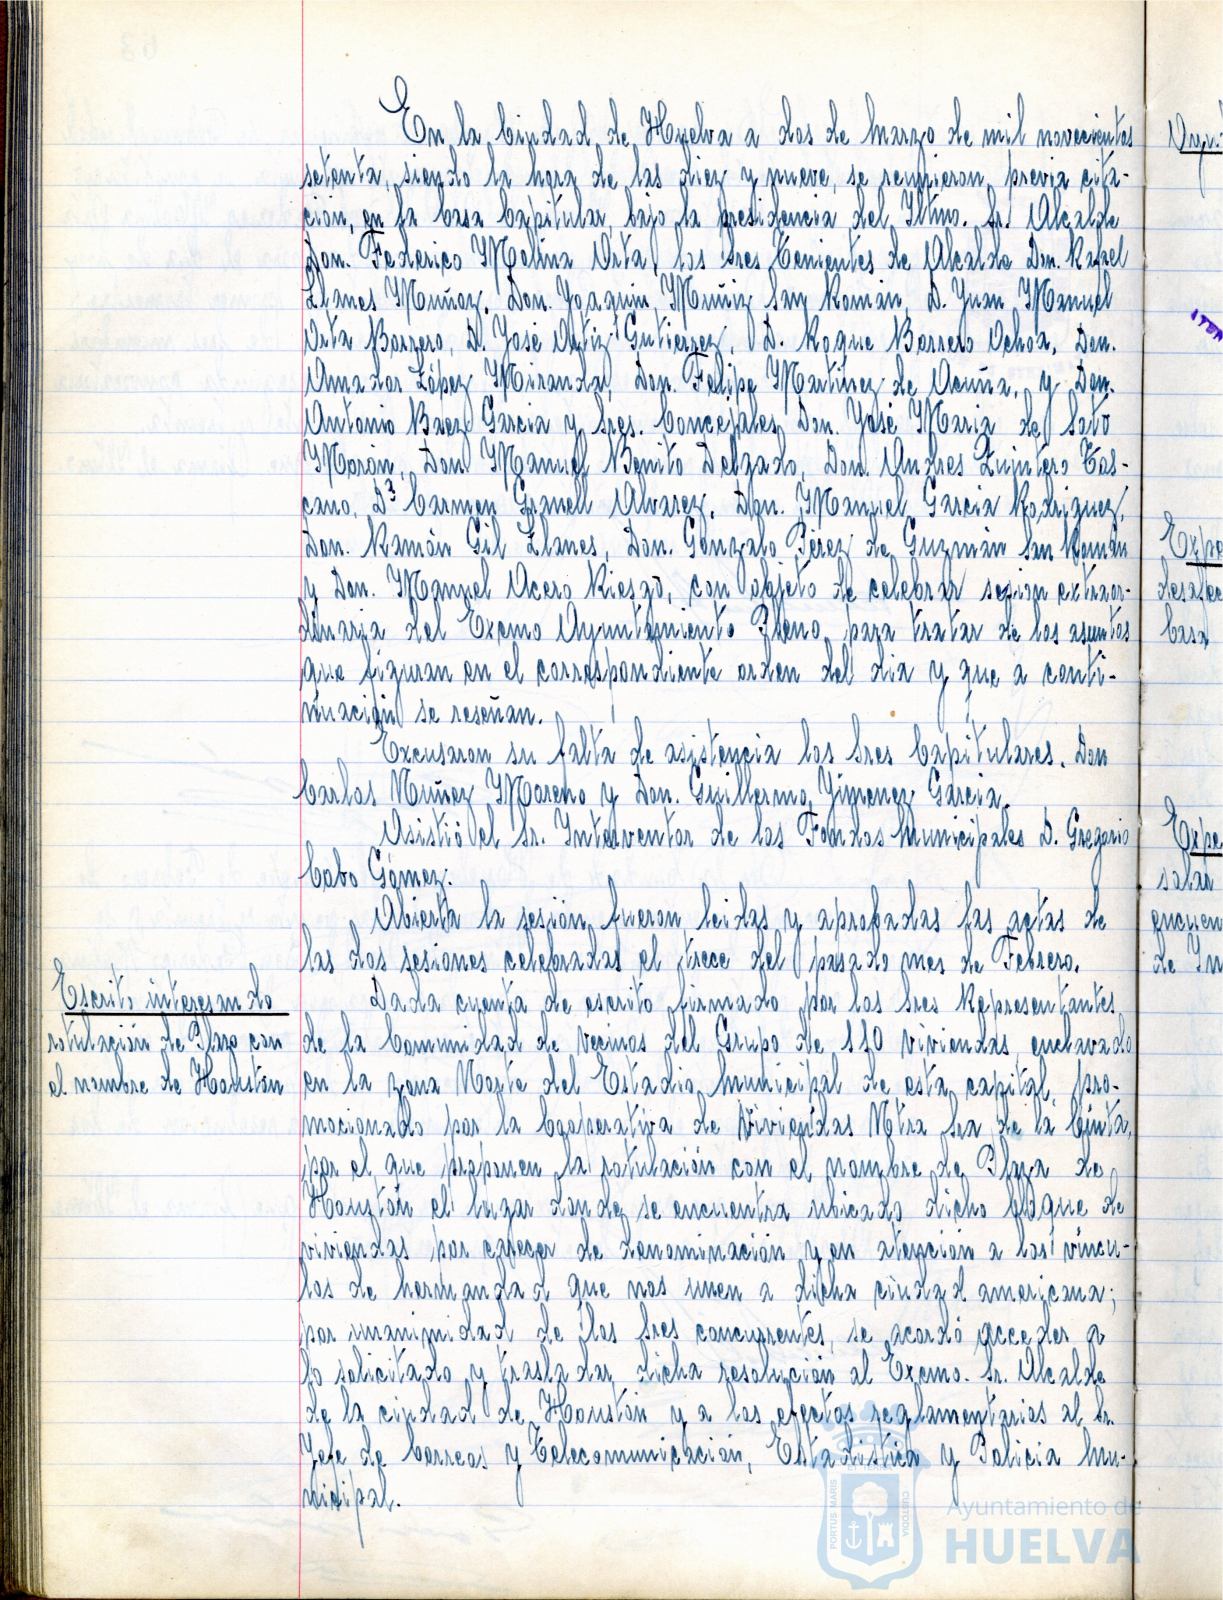 En la Ciudad de Huelva a dos de Marzo de mil novecientos
setenta, siendo la hora de las diez y nueve, se reunieron, previa cita-
cion, en la Casa Capitular, bajo la presidencia del Iltmo. Sr. Alcalde
Don. Federico Molina Orta, los Sres Tenientes de Alcalde Don. Rafael
Llanes Muñoz, Don. Joaquin Muñiz San Román, D. Juan Manuel
Orta Borrero, D. José Ortiz Gutierrez, D. Roque Barrero Ochoa, Don.
Amador López Miranda, Don. Felipe Martínez de Acuña, y Don.
Antonio Baez Garcia y Sres. Concejales Don. José Maria de Soto
Morán, Don Manuel Benito Delgado, Don. Andres Quintero Tos-
cano, Dª Carmen Granell Alvarez, Don. Manuel Garcia Rodriguez,
Don. Ramón Gil Llanes, Don. Gonzalo Pérez de Guzmán San Román
y Don. Manuel Acero Riesgo, con objeto de celebrar sesion extraor-
dinaria del Excmo Ayuntamiento Pleno, para tratar de los asuntos
que figuran en el correspondiente orden del dia y que a conti-
nuación se reseñan.
Excusaron su falta de asistencia los Sres Capitulares, Don
Carlos Núñez Moreno y Don. Guillermo Jimenez Garcia.
Asistió el Sr. Interventor de los Fondos Municipales D. Gregorio
Cabo Gómez.
Abierta la sesión fueron leidas y aprobadas las actas de
las dos sesiones celebradas el trece del pasado mes de Febrero.
Escrito interesando
rotulación de Plaza con
el nombre de Houstón
Dada cuenta de escrito firmado por los Sres Representantes
de la Comunidad de Vecinos del Grupo de 110 viviendas, enclavado
en la zona Norte del Estadio Municipal de esta capital, pro-
mocionado por la Cooperativa de Viviendas Ntra Sra de la Cinta,
por el que proponen la rotulación con el nombre de Plaza de
Houstón el lugar donde se encuentra ubicado dicho bloque de
viviendas por carecer de denominación y en atención a los víncu-
los de hermandad que nos unen a dicha ciudad americana;
por unanimidad de los Sres concurrentes, se acordó acceder a
lo solicitado y trasladar dicha resolución al Excmo. Sr. Alcalde
de la ciudad de Houstón y a los efectos reglamentarios al Sr.
Jefe de Correos y Telecomunicación, Estadistica y Policia Mu-
nicipal.
Expe
desafec
Casa
Expe
solar
encuen
de In
PORTUS MARIS
CUSTODIA
Ayuntamiento de
HUELVA